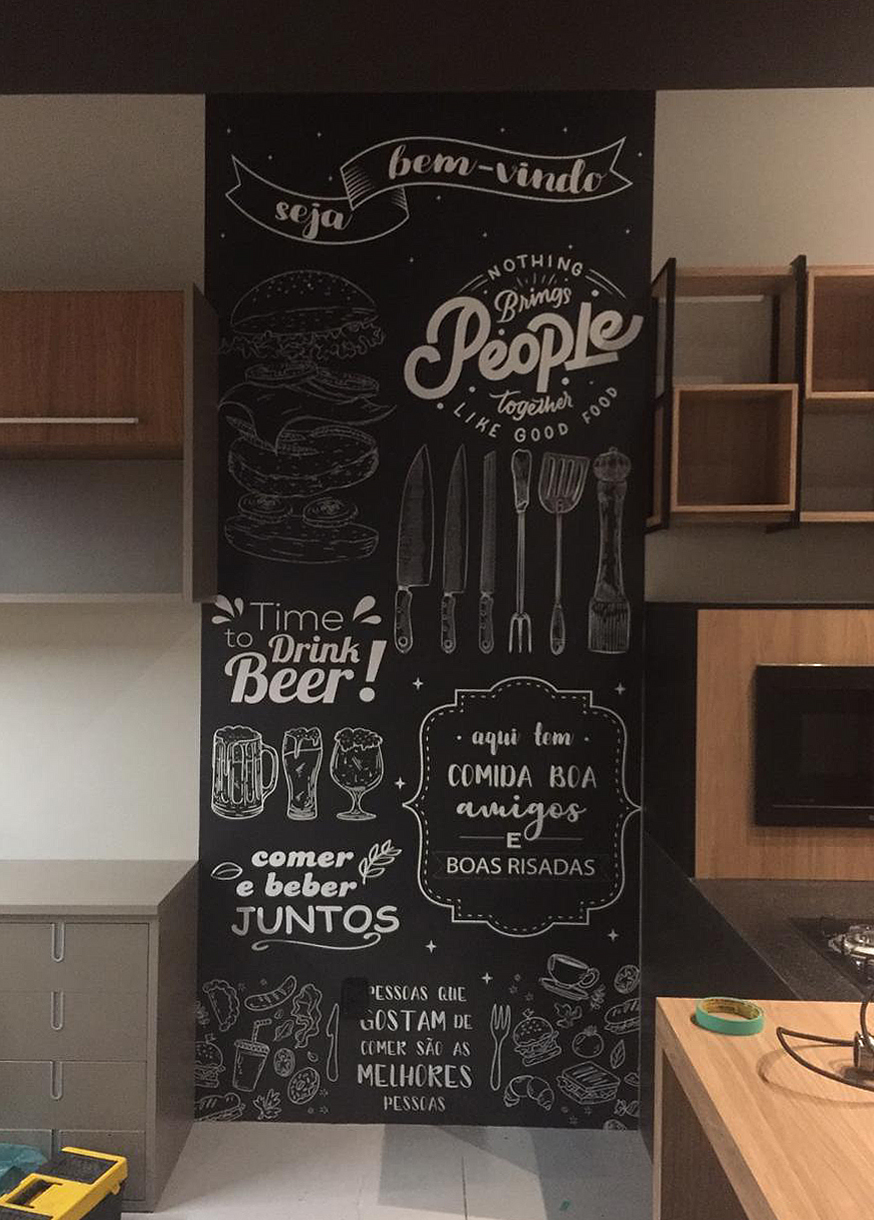 seja bem-vindo
NOTHING
Brings
PEOPLE
together
LIKE GOOD FOOD
Time
to Drink
Beer!
aqui tem
COMIDA BOA
amigos
E
BOAS RISADAS
comer
e beber
JUNTOS
PESSOAS QUE
GOSTAM DE
COMER SÃO AS
MELHORES
PESSOAS